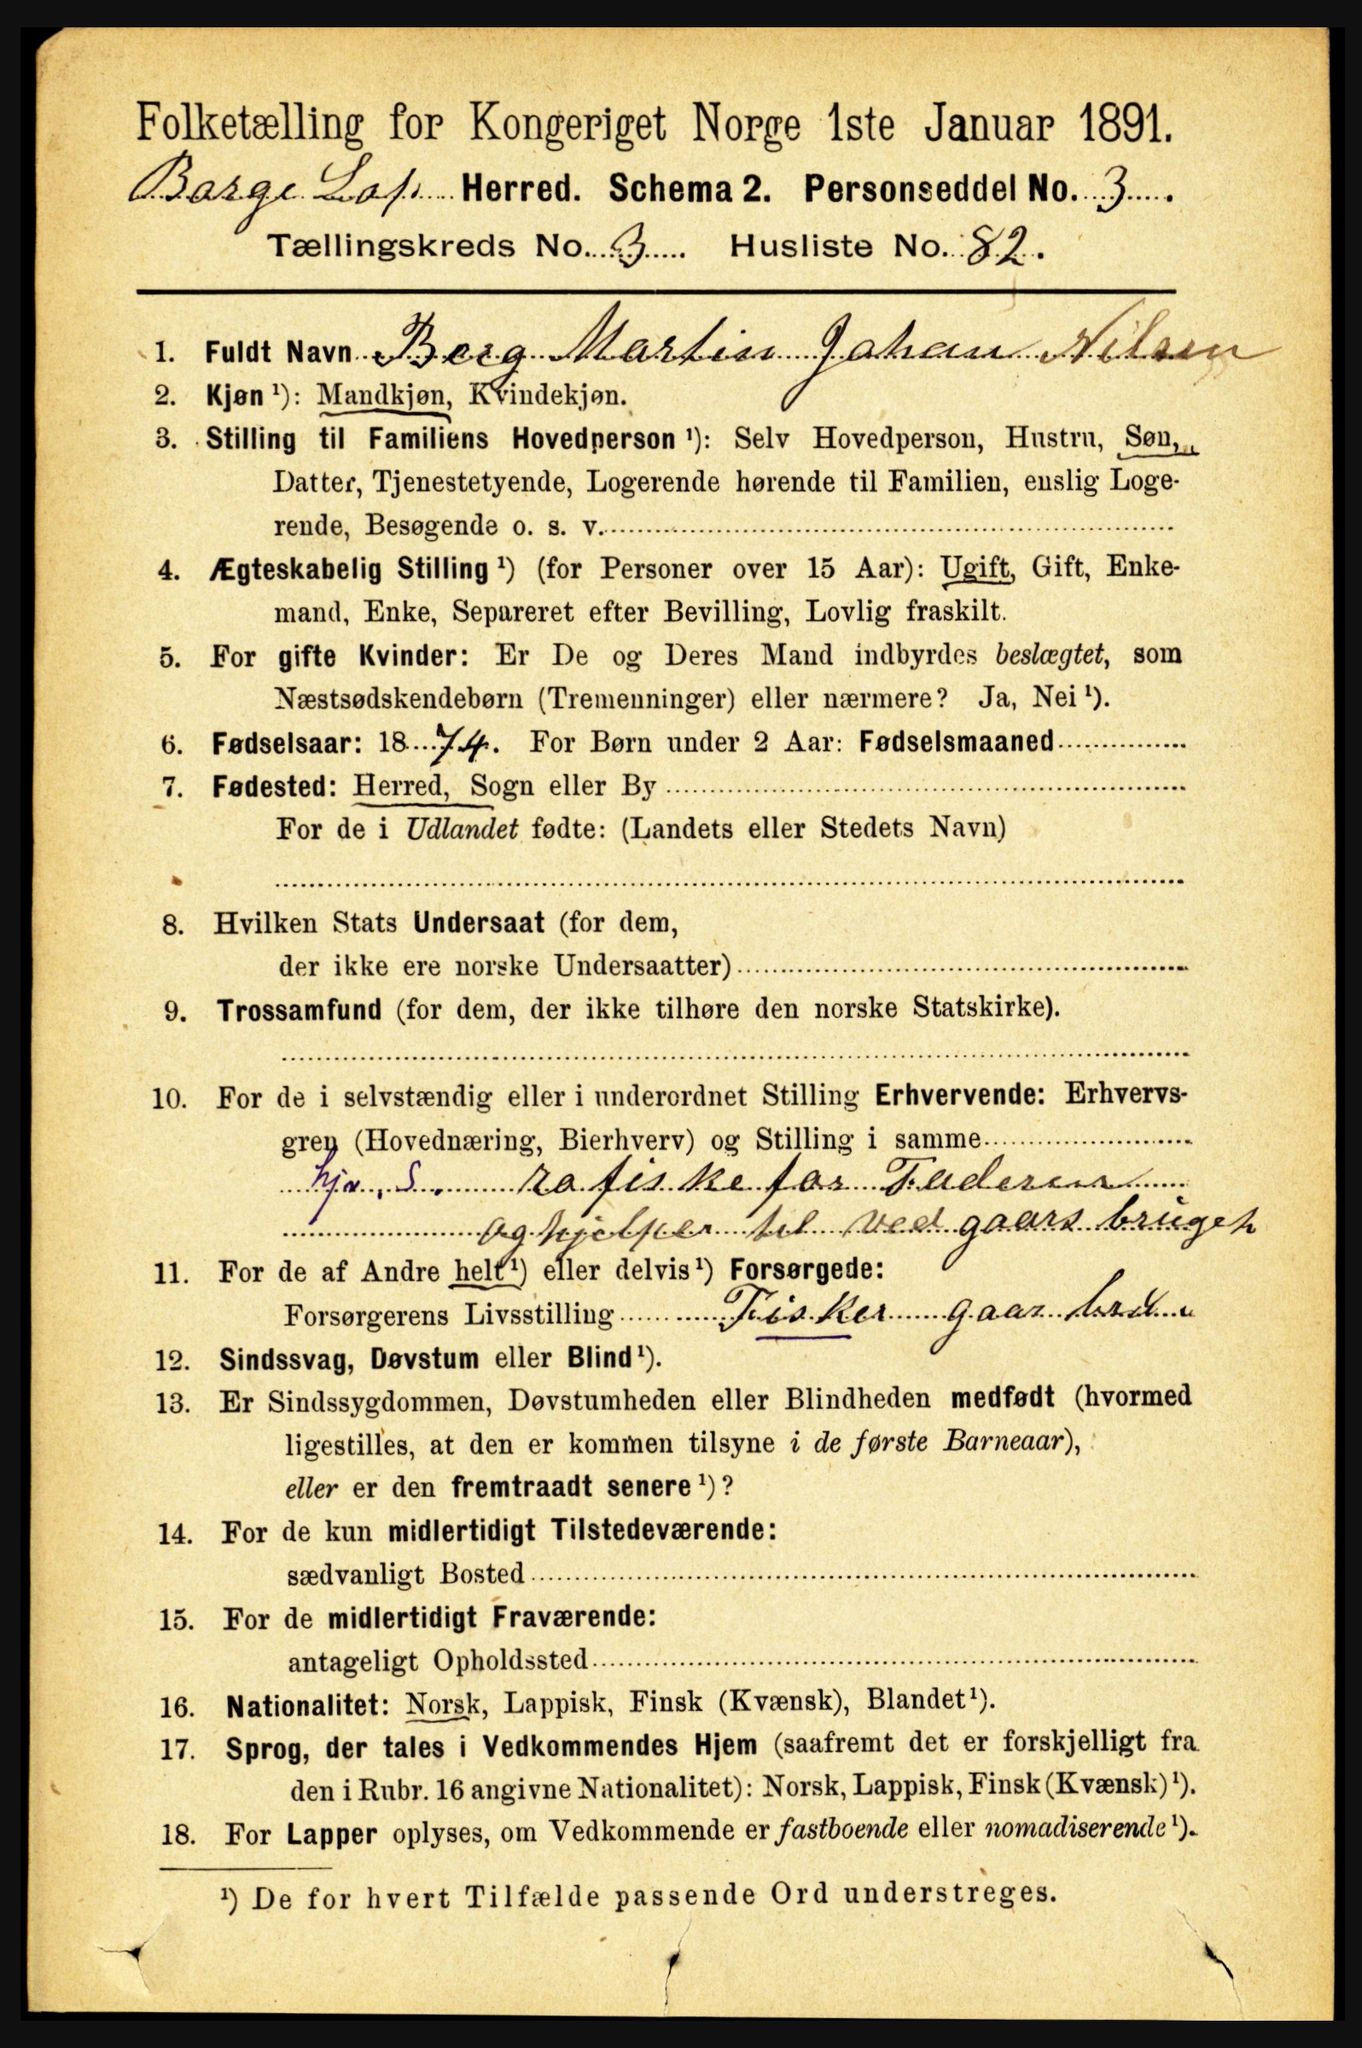 Folketælling for Kongeriget Norge 1ste Januar 1891.
Borge Lof. Herred. Schema 2. Personseddel No. 3.
Tællingskreds No. 3. Husliste No. 82.
1. Fuldt Navn Berg Martin Johan Nilsen
2. Kjøn ¹): Mandkjøn, Kvindekjøn.
3. Stilling til Familiens Hovedperson ¹): Selv Hovedperson, Hustru, Søn,
Datter, Tjenestetyende, Logerende hørende til Familien, enslig Loge-
rende, Besøgende o. s. v.
4. Ægteskabelig Stilling ¹) (for Personer over 15 Aar): Ugift, Gift, Enke-
mand, Enke, Separeret efter Bevilling, Lovlig fraskilt.
5. For gifte Kvinder: Er De og Deres Mand indbyrdes beslægtet, som
Næstsødskendebørn (Tremenninger) eller nærmere? Ja, Nei ¹).
6. Fødselsaar: 18 74. For Børn under 2 Aar: Fødselsmaaned
7. Fødested: Herred, Sogn eller By
For de i Udlandet fødte: (Landets eller Stedets Navn)
8. Hvilken Stats Undersaat (for dem,
der ikke ere norske Undersaatter)
9. Trossamfund (for dem, der ikke tilhøre den norske Statskirke).
10. For de i selvstændig eller i underordnet Stilling Erhvervende: Erhvervs-
gren (Hovednæring, Bierhverv) og Stilling i samme
hjv. S. ro fiske for Faderen
og hjelper til ved gaars bruget
11. For de af Andre helt ¹) eller delvis ¹) Forsørgede:
Forsørgerens Livsstilling Fisker gaar
12. Sindssvag, Døvstum eller Blind ¹).
13. Er Sindssygdommen, Døvstumheden eller Blindheden medfødt (hvormed
ligestilles, at den er kommen tilsyne i de første Barneaar),
eller er den fremtraadt senere ¹)?
14. For de kun midlertidigt Tilstedeværende:
sædvanligt Bosted
15. For de midlertidigt Fraværende:
antageligt Opholdssted
16. Nationalitet: Norsk, Lappisk, Finsk (Kvænsk), Blandet ¹).
17. Sprog, der tales i Vedkommendes Hjem (saafremt det er forskjelligt fra
den i Rubr. 16 angivne Nationalitet): Norsk, Lappisk, Finsk (Kvænsk) ¹).
18. For Lapper oplyses, om Vedkommende er fastboende eller nomadiserende ¹).
¹) De for hvert Tilfælde passende Ord understreges.